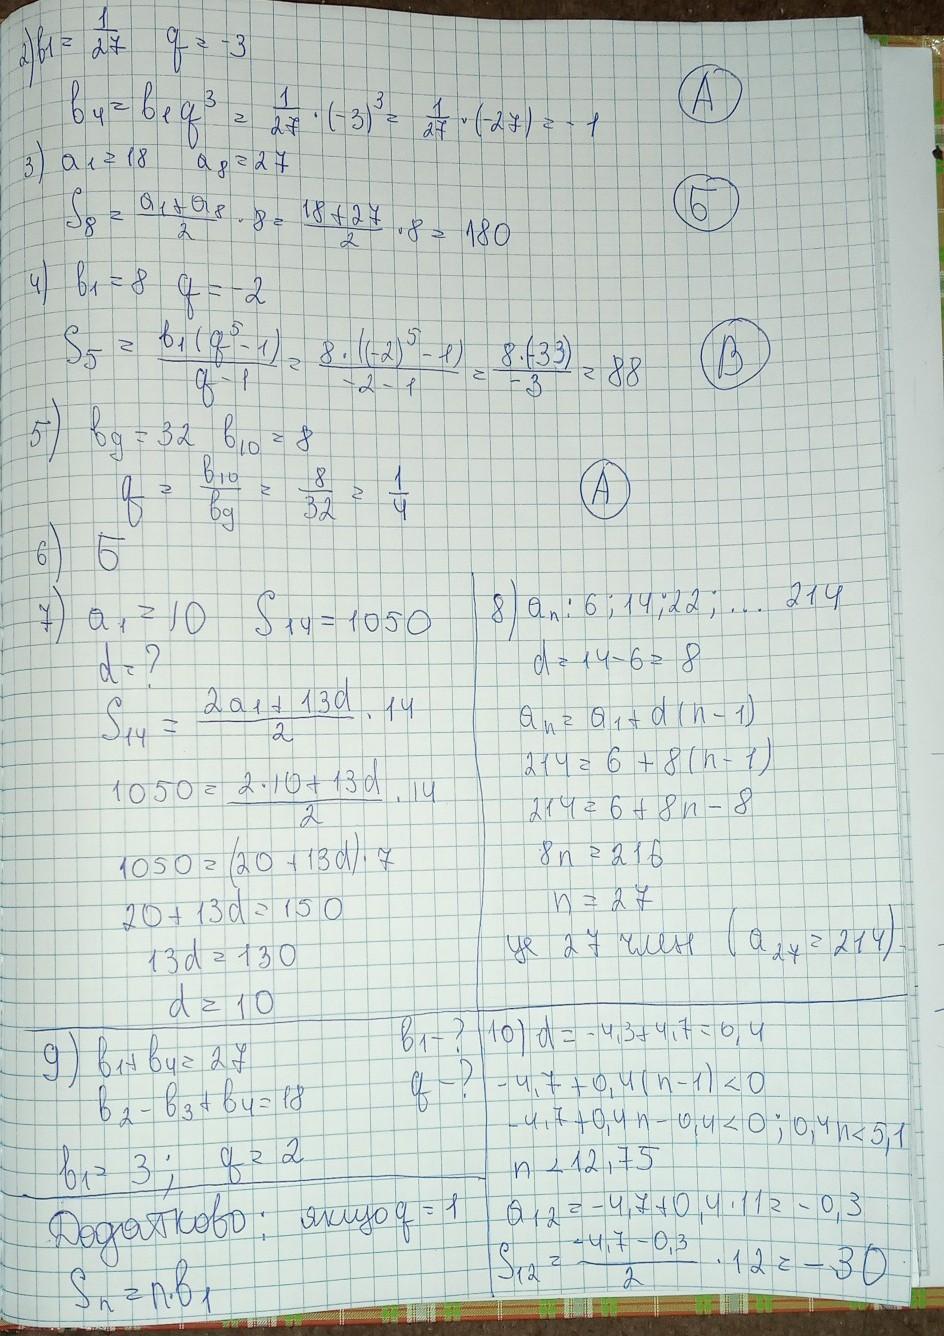 2) в1 = 1/27 q = -3
в4 = в1q³ = 1/27 · (-3)³ = 1/27 · (-27) = -1 А
3) a1 = 18 a8 = 27
S8 = (a1 + a8)/2 · 8 = (18+27)/2 · 8 = 180 Б
4) в1 = 8 q = -2
S5 = в1(q⁵ - 1)/(q - 1) = 8·((-2)⁵ - 1)/(-2 - 1) = 8·(-33)/(-3) = 88 В
5) в9 = 32 в10 = 8
q = в10/в9 = 8/32 = 1/4 А
6) Б
7) a1 = 10 S14 = 1050
d = ?
S14 = (2a1 + 13d)/2 · 14
1050 = (2·10 + 13d)/2 · 14
1050 = (20 + 13d)·7
20 + 13d = 150
13d = 130
d = 10
8) an: 6; 14; 22; ... 214
d = 14 - 6 = 8
an = a1 + d(n - 1)
214 = 6 + 8(n - 1)
214 = 6 + 8n - 8
8n = 216
n = 27
це 27 член (a27 = 214)
9) в1 + в4 = 27 в1 - ?
в2 - в3 + в4 = 18 q - ?
в1 = 3; q = 2
Додатково: якщо q = 1
Sn = n·в1
10) d = -4,3 + 4,7 = 0,4
-4,7 + 0,4(n - 1) < 0
-4,7 + 0,4n - 0,4 < 0; 0,4n < 5,1
n < 12,75
a12 = -4,7 + 0,4·11 = -0,3
S12 = (-4,7 - 0,3)/2 · 12 = -30